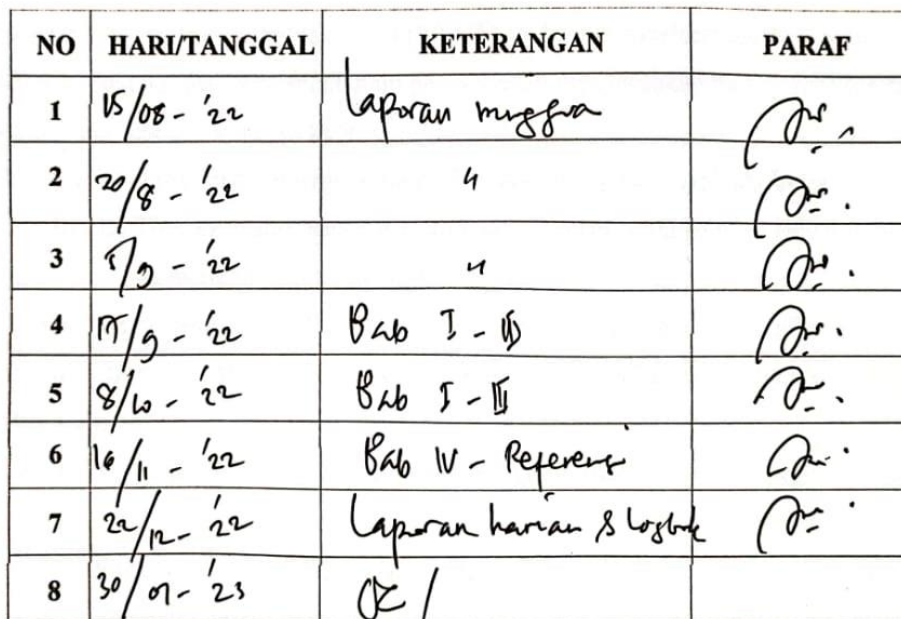 NO HARI/TANGGAL KETERANGAN PARAF
1 15/08 - '22 Laporan minggua
2 20/8 - '22 "
3 /9 - '22 "
4 17/9 - '22 Bab I - III
5 8/10 - '22 Bab I - III
6 16/11 - '22 Bab IV - Referensi
7 22/12 - '22 Laporan harian & logbook
8 30/01 - '23 OK /